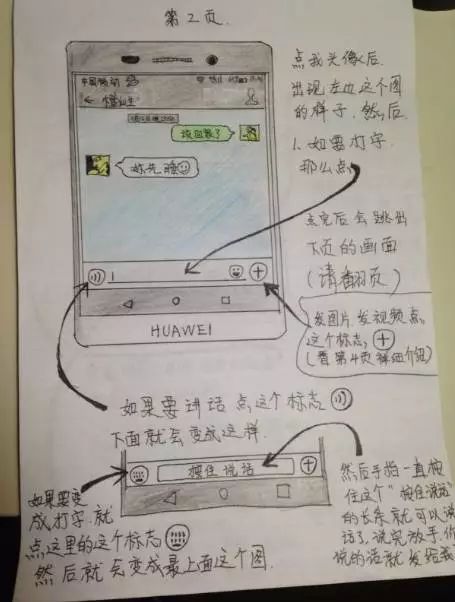 第2页.
点我头像后.
出现左边这个图
的样子.然后
1.如要打字.
那么点
点完后会跳出
下页的画面
(请翻页)
中国移动
该回家了
你先睡
HUAWEI
发图片.发视频点.
这个标志.
(看第4页详细介绍)
如果要讲话点这个标志
下面就会变成这样.
按住说话
如果要变
成打字.就
点这里的这个标志
然后就会变成最上面这个图.
然后手指一直按
住这个"按住说话"
的长条就可以说
话了.说完放手.你
说的话就发给我